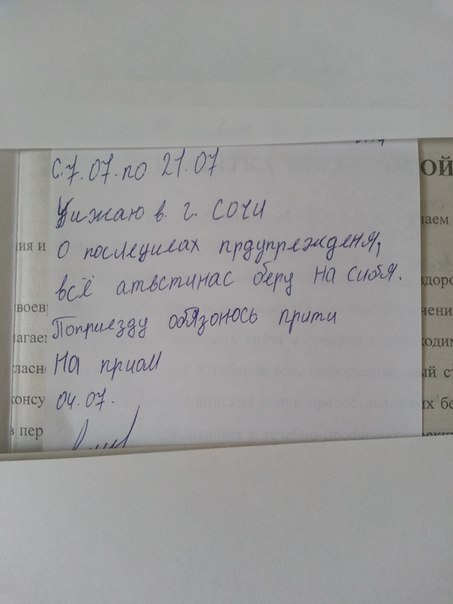 с 7.07. по 21.07
Уижаю в г. Сочи
О послецилах прдупрежденя,
всё атвстинас беру на сибя.
Поприезду обязонось прити
на приом
04.07.
ОЙ
аем
ия и
здоро
воев
чени
агаем
ходим
гласно
ый ст
консу
ых бе
в пер